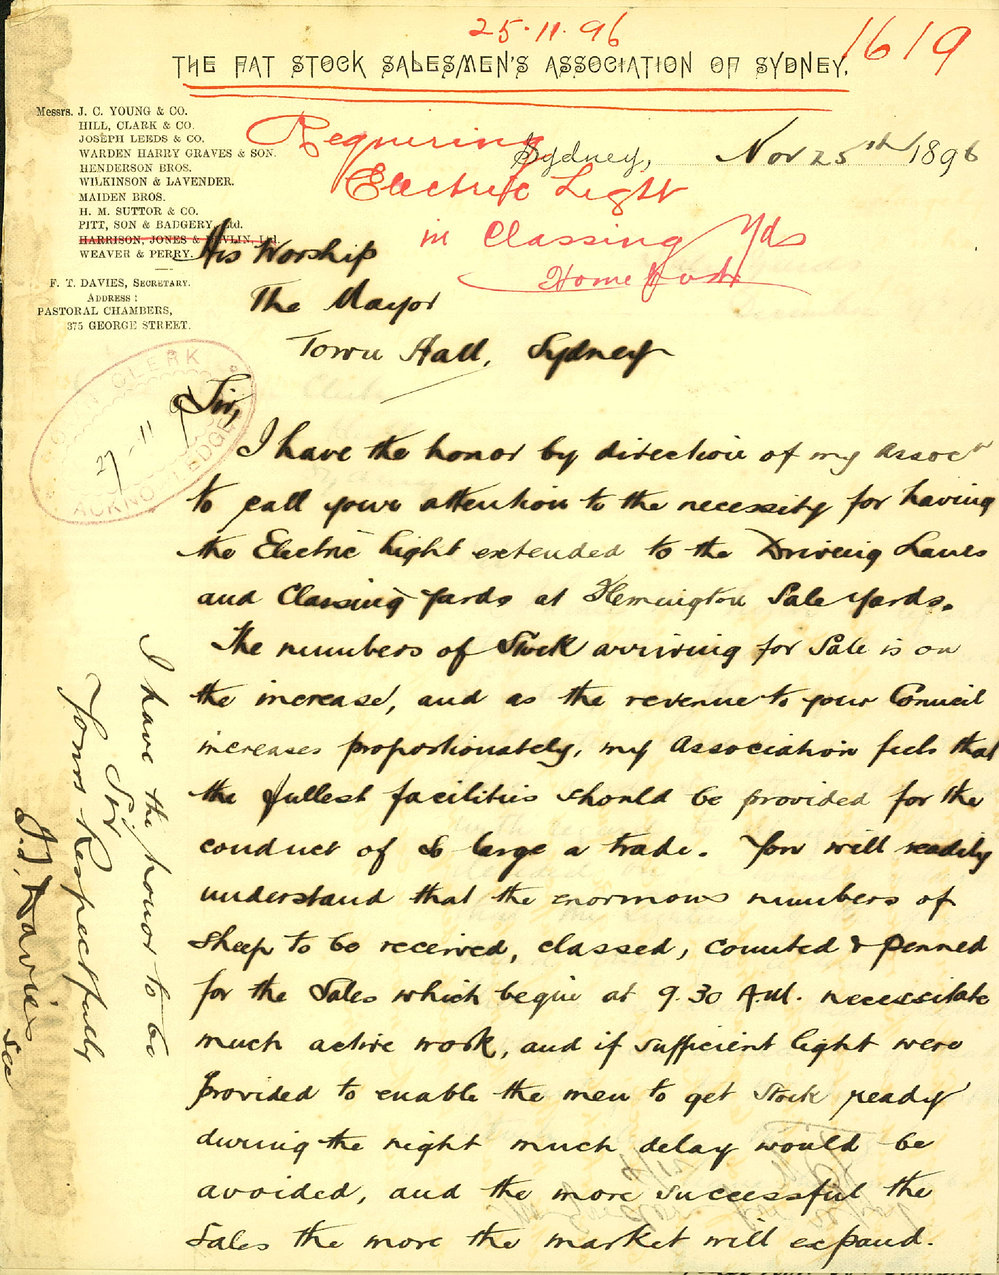 25.11.96
1619
THE FAT STOCK SALESMEN'S ASSOCIATION OF SYDNEY.
Messrs. J. C. YOUNG & CO.
HILL, CLARK & CO.
JOSEPH LEEDS & CO.
WARDEN HARRY GRAVES & SON.
HENDERSON BROS.
WILKINSON & LAVENDER.
MAIDEN BROS.
H. M. SUTTOR & CO.
PITT, SON & BADGERY, Ltd.
HARRISON, JONES & DEVLIN, Ltd.
WEAVER & PERRY.
F. T. DAVIES, SECRETARY.
ADDRESS:
PASTORAL CHAMBERS,
375 GEORGE STREET.
Requiring
Electric Light
in Classing Yds
Homebush
Sydney, Nov 25th 1896
His Worship
The Mayor
Town Hall, Sydney
TOWN CLERK
27-11
ACKNOWLEDGED
Sir,
I have the honor by direction of my Assocn
to call your attention to the necessity for having
the Electric light extended to the Driving Lanes
and Classing Yards at Flemington Sale Yards.
The numbers of Stock arriving for Sale is on
the increase, and as the revenue to your Council
increases proportionately, my Association feels that
the fullest facilities should be provided for the
conduct of so large a trade. You will readily
understand that the enormous numbers of
Sheep to be received, classed, counted & penned
for the Sales which begin at 9.30 A.M. necessitate
much active work, and if sufficient light were
provided to enable the men to get stock ready
during the night much delay would be
avoided, and the more successful the
Sales the more the market will expand.
I have the honor to be
Sir
Yours Respectfully
F.T. Davies
Sec